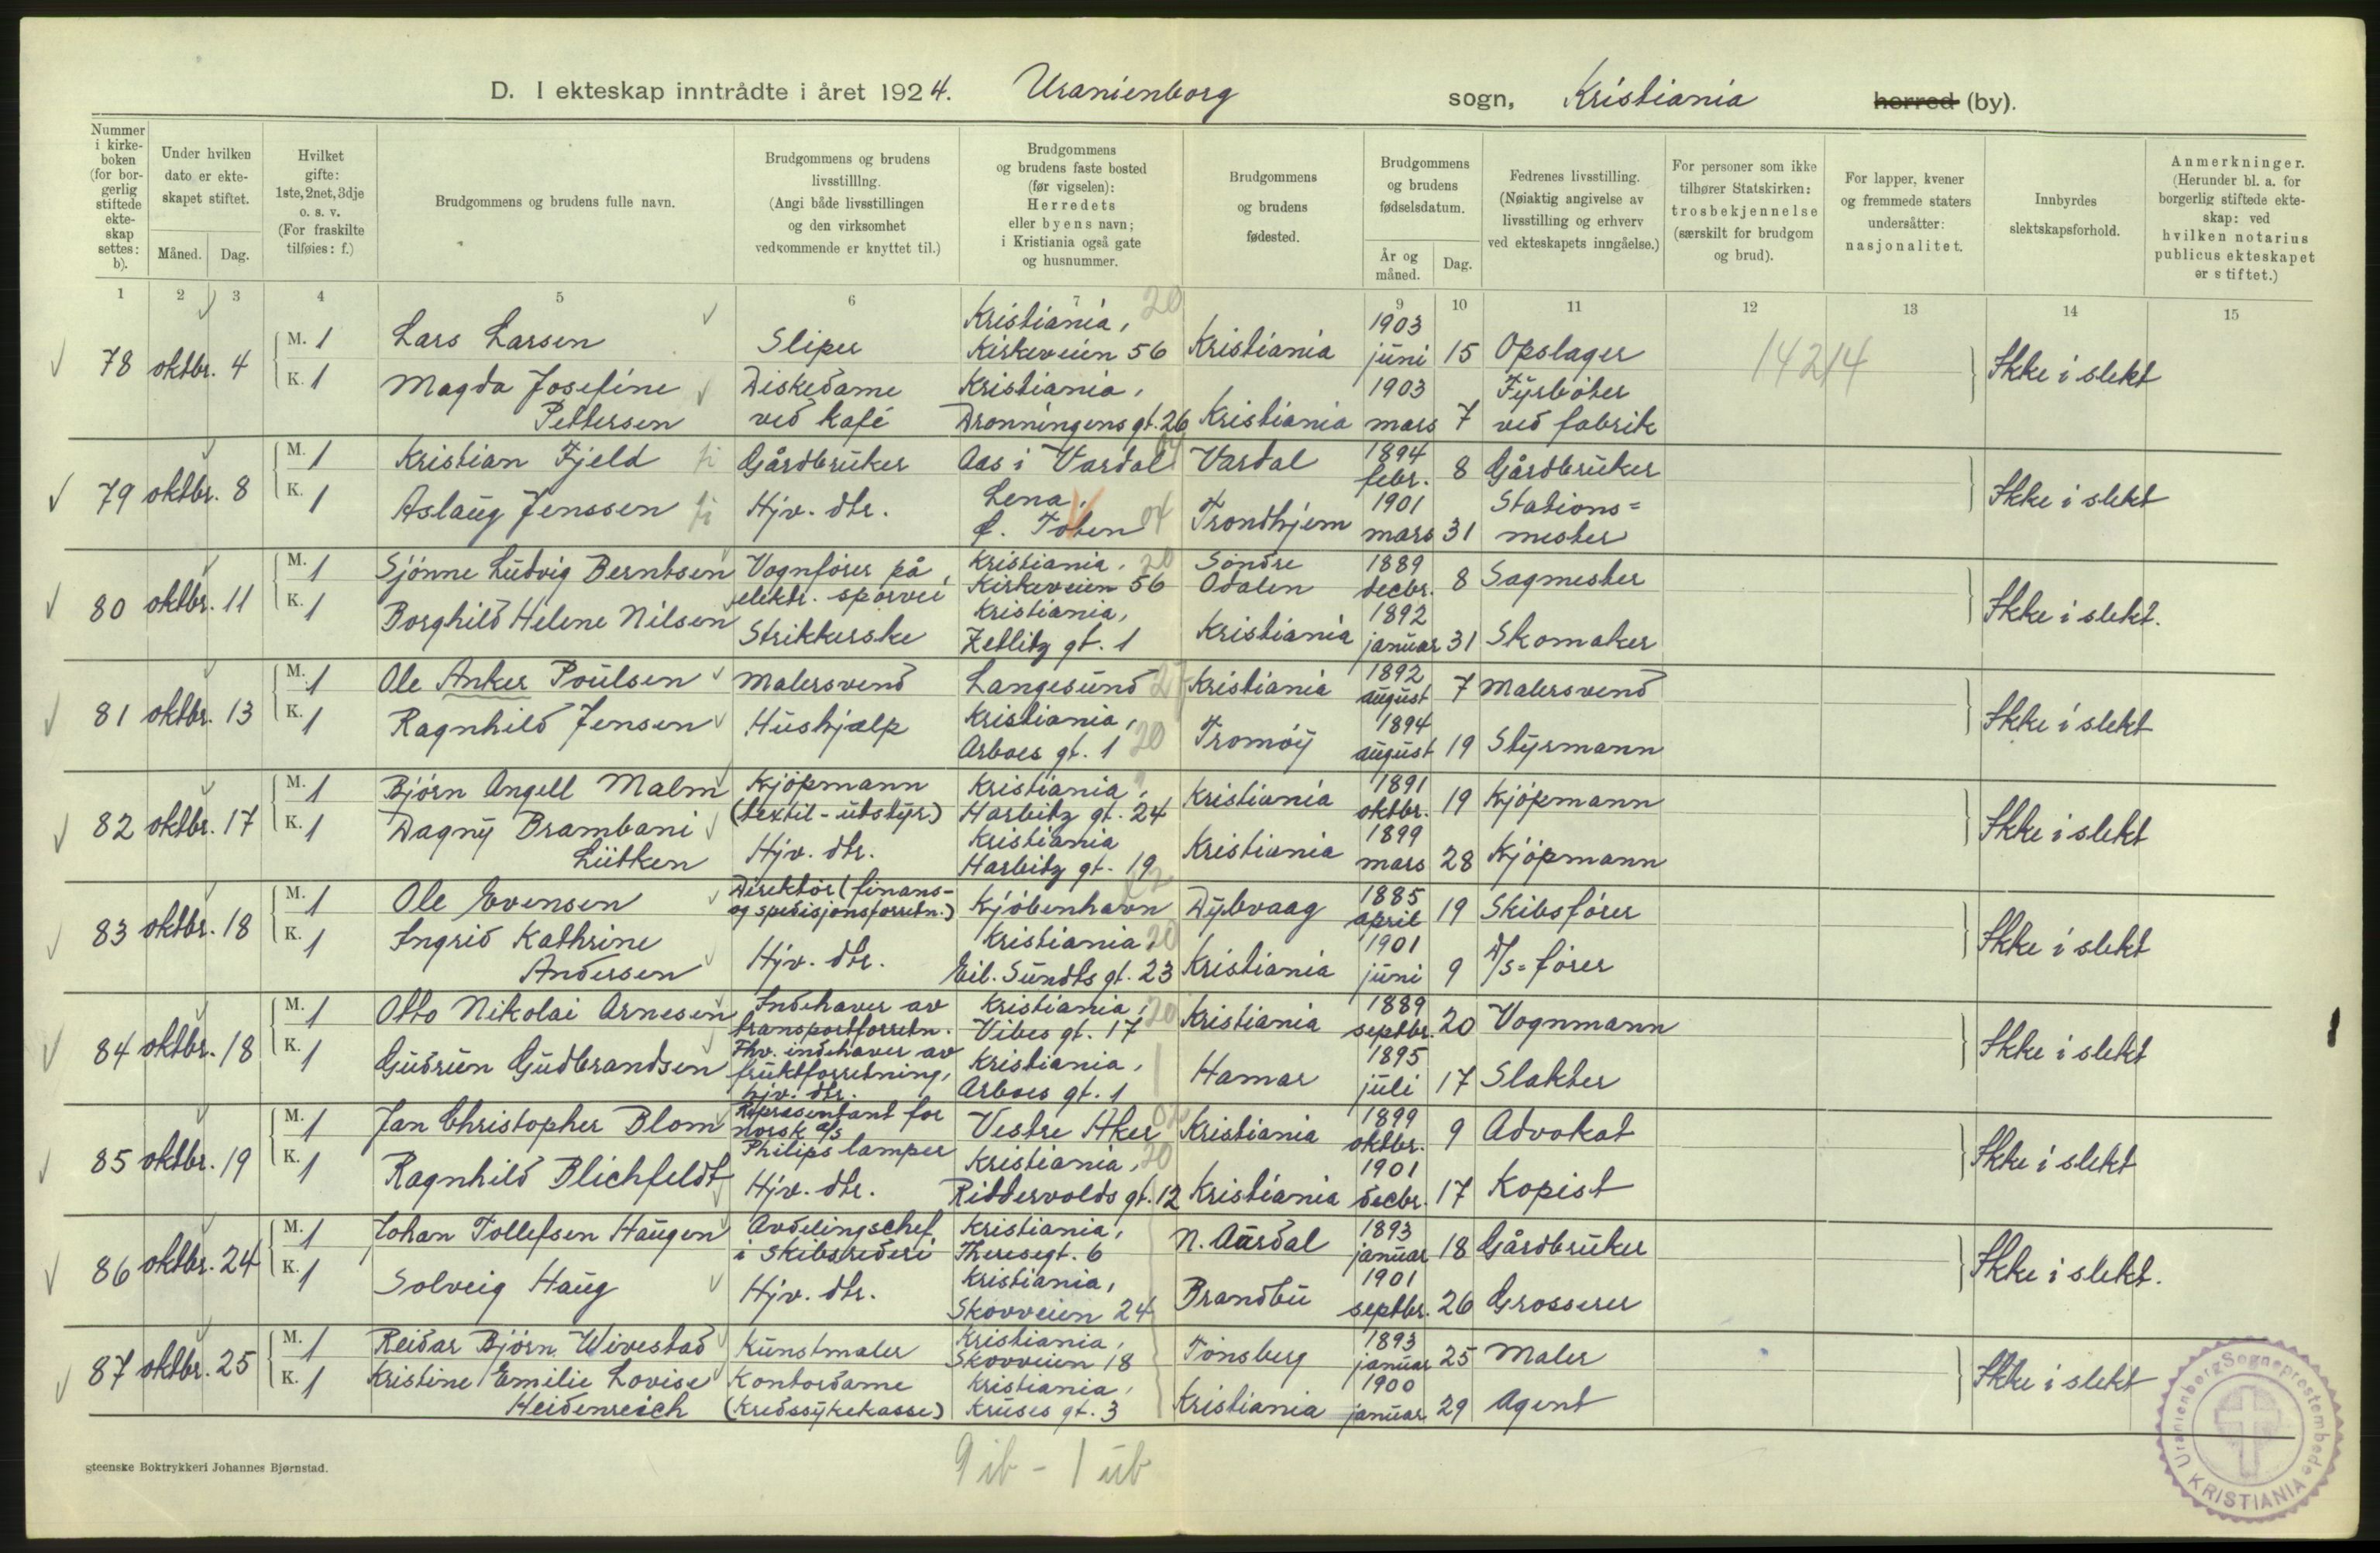 D. I ekteskap inntrådte i året 1924. Uranienborg sogn, Kristiania herred (by).
Nummer i kirke- boken (for bor- gerlig stiftede ekte- skap settes: b).
Under hvilken dato er ekte- skapet stiftet.
Måned. Dag.
Hvilket gifte: 1ste, 2net, 3dje o. s. v. (For fraskilte tilføies: f.)
Brudgommens og brudens fulle navn.
Brudgommens og brudens livsstilllng. (Angi både livsstillingen og den virksomhet vedkommende er knyttet til.)
Brudgommens og brudens faste bosted (før vigselen): Herredets eller byens navn; i Kristiania også gate og husnummer.
Brudgommens og brudens fødested.
Brudgommens og brudens fødselsdatum.
År og måned. Dag.
Fedrenes livsstilling. (Nøiaktig angivelse av livsstilling og erhverv ved ekteskapets inngåelse.)
For personer som ikke tilhører Statskirken: trosbekjennelse (særskilt for brudgom og brud).
For lapper, kvener og fremmede staters undersåtter: nasjonalitet.
Innbyrdes slektskapsforhold.
Anmerkninger. (Herunder bl. a. for borgerlig stiftede ekte- skap: ved hvilken notarius publicus ekteskapet er stiftet.)
1 2 3 4 5 6 7 9 10 11 12 13 14 15
78 oktbr. 4 M. 1 Lars Larsen Sliper Kristiania, 20 Kirkeveien 56 Kristiania 1903 juni 15 Opslager 14214 Ikke i slekt
K. 1 Magda Josefine Pettersen Diskedame ved kafé Kristiania, Dronningens gt. 26 Kristiania 1903 mars 7 Fyrbøter ved fabrik
79 oktbr. 8 M. 1 Kristian Fjeld Gårdbruker Aas i Vardal Vardal 1894 febr. 8 Gårdbruker Ikke i slekt
K. 1 Aslaug Jenssen Hjv. dtr. Lena, Ø. Toten 04 Trondhjem 1901 mars 31 Stations= mester
80 oktbr. 11 M. 1 Sjønne Ludvig Berntsen Vognfører på elektr. sporvei Kristiania, 20 Kirkeveien 56 Søndre Odalen 1889 decbr. 8 Sagmester Ikke i slekt.
K. 1 Borghild Helene Nilsen Strikkerske Kristiania, Zetlitz gt. 1 Kristiania 1892 januar 31 Skomaker
81 oktbr. 13 M. 1 Ole Anker Poulsen Malersvend Langesund Kristiania 1892 august 7 Malersvend Ikke i slekt
K. 1 Ragnhild Jensen Hushjælp Kristiania, Arboes gt. 1 20 Tromøy 1894 august 19 Styrmann
82 oktbr. 17 M. 1 Bjørn Angell Malm Kjøpmann (textil-utstyr) Kristiania, Harbitz gt. 24 Kristiania 1891 oktbr. 19 Kjøpmann Ikke i slekt
K. 1 Dagny Brambani Lütken Hjv. dtr. Kristiania Harbitz gt. 19 Kristiania 1899 mars 28 Kjøpmann
83 oktbr. 18 M. 1 Ole Evensen Direktør (finans- og spedisjonsforretn.) Kjøbenhavn Dybvaag 1885 april 19 Skibsfører Ikke i slekt
K. 1 Ingrid Kathrine Andersen Hjv. dtr. Kristiania, 20 Eil. Sundts gt. 23 Kristiania 1901 juni 9 D/S=fører
84 oktbr. 18 M. 1 Otto Nikolai Arnesen Indehaver av transportforretn. Kristiania, 20 Vibes gt. 17 Kristiania 1889 septbr. 20 Vognmann Ikke i slekt
K. 1 Gudrun Gudbrandsen Fhv. indehaver av fruktforretning, hjv. dtr. Kristiania, Arboes gt. 1 Hamar 1895 juli 17 Slakter
85 oktbr. 19 M. 1 Jan Christopher Blom Representant for norsk A/S Philips lamper Vestre Aker Kristiania 1899 oktbr. 9 Advokat Ikke i slekt
K. 1 Ragnhild Blichfeldt Hjv. dtr. Kristiania, 20 Riddervolds gt. 12 Kristiania 1901 decbr. 17 Kopist
86 oktbr. 24 M. 1 Johan Tollefsen Haugen Avdelingschef i skibsrederi Kristiania, Theresegt. 6 N. Aurdal 1893 januar 18 Gårdbruker Ikke i slekt.
K. 1 Solveig Haug Hjv. dtr. Kristiania, Skovveien 24 Brandbu 1901 septbr. 26 Grosserer
87 oktbr. 25 M. 1 Reidar Bjørn Wivestad Kunstmaler Kristiania, Skovveien 18 Tønsberg 1893 januar 25 Maler Ikke i slekt
K. 1 Kristine Emilie Lovise Heidenreich Kontordame (Kredssykekasse) Kristiania, Kruses gt. 3 Kristiania 1900 januar 29 Agent
9 ib - 1 ub
steenske Boktrykkeri Johannes Bjørnstad.
Uranienborg Sogneprestembede KRISTIANIA